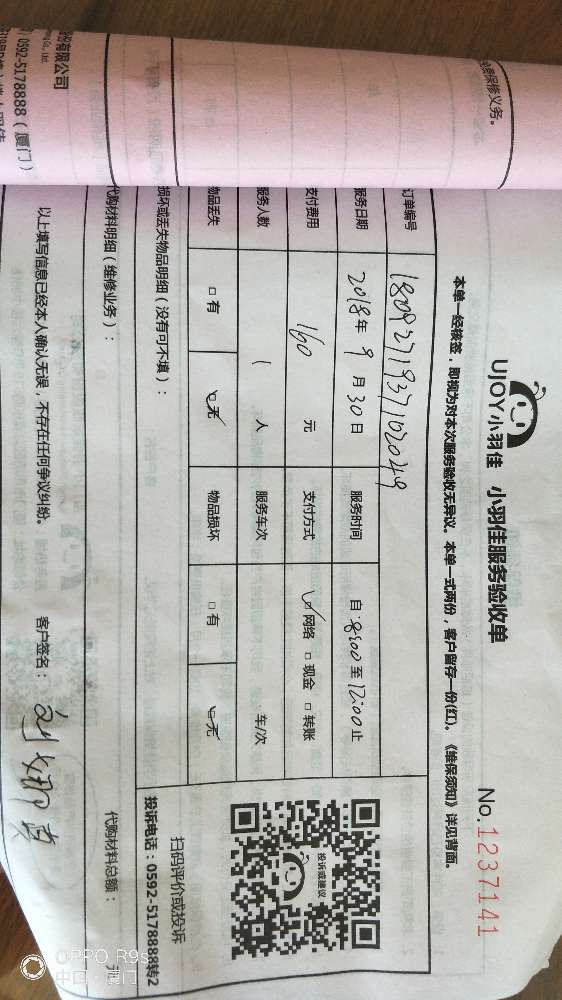 UJOY小羽佳 小羽佳服务验收单
No.1237141
本单一经核签，即视为对本次服务验收无异议。本单一式两份，客户留存一份(红)。《维保须知》详见背面。
订单编号 18092719371020249
服务日期 2018年9月30日 服务时间 自:8:00至12:00止
支付费用 160 元 支付方式 ☑网络 □现金 □转账
服务人数 1 人 服务车次 车/次
物品丢失 □有 ☑无 物品损坏 □有 ☑无
投诉或建议
扫码评价或投诉
投诉电话：0592-5178888转2
损坏或丢失物品明细（没有可不填）：
代购材料明细（维修业务）：
代购材料总额： 元
以上填写信息已经本人确认无误，不存在任何争议纠纷。 客户签名：
免费保修义务。
股份有限公司
Co., Ltd.
0592-5178888（厦门）
OPPO R9s
中国·厦门